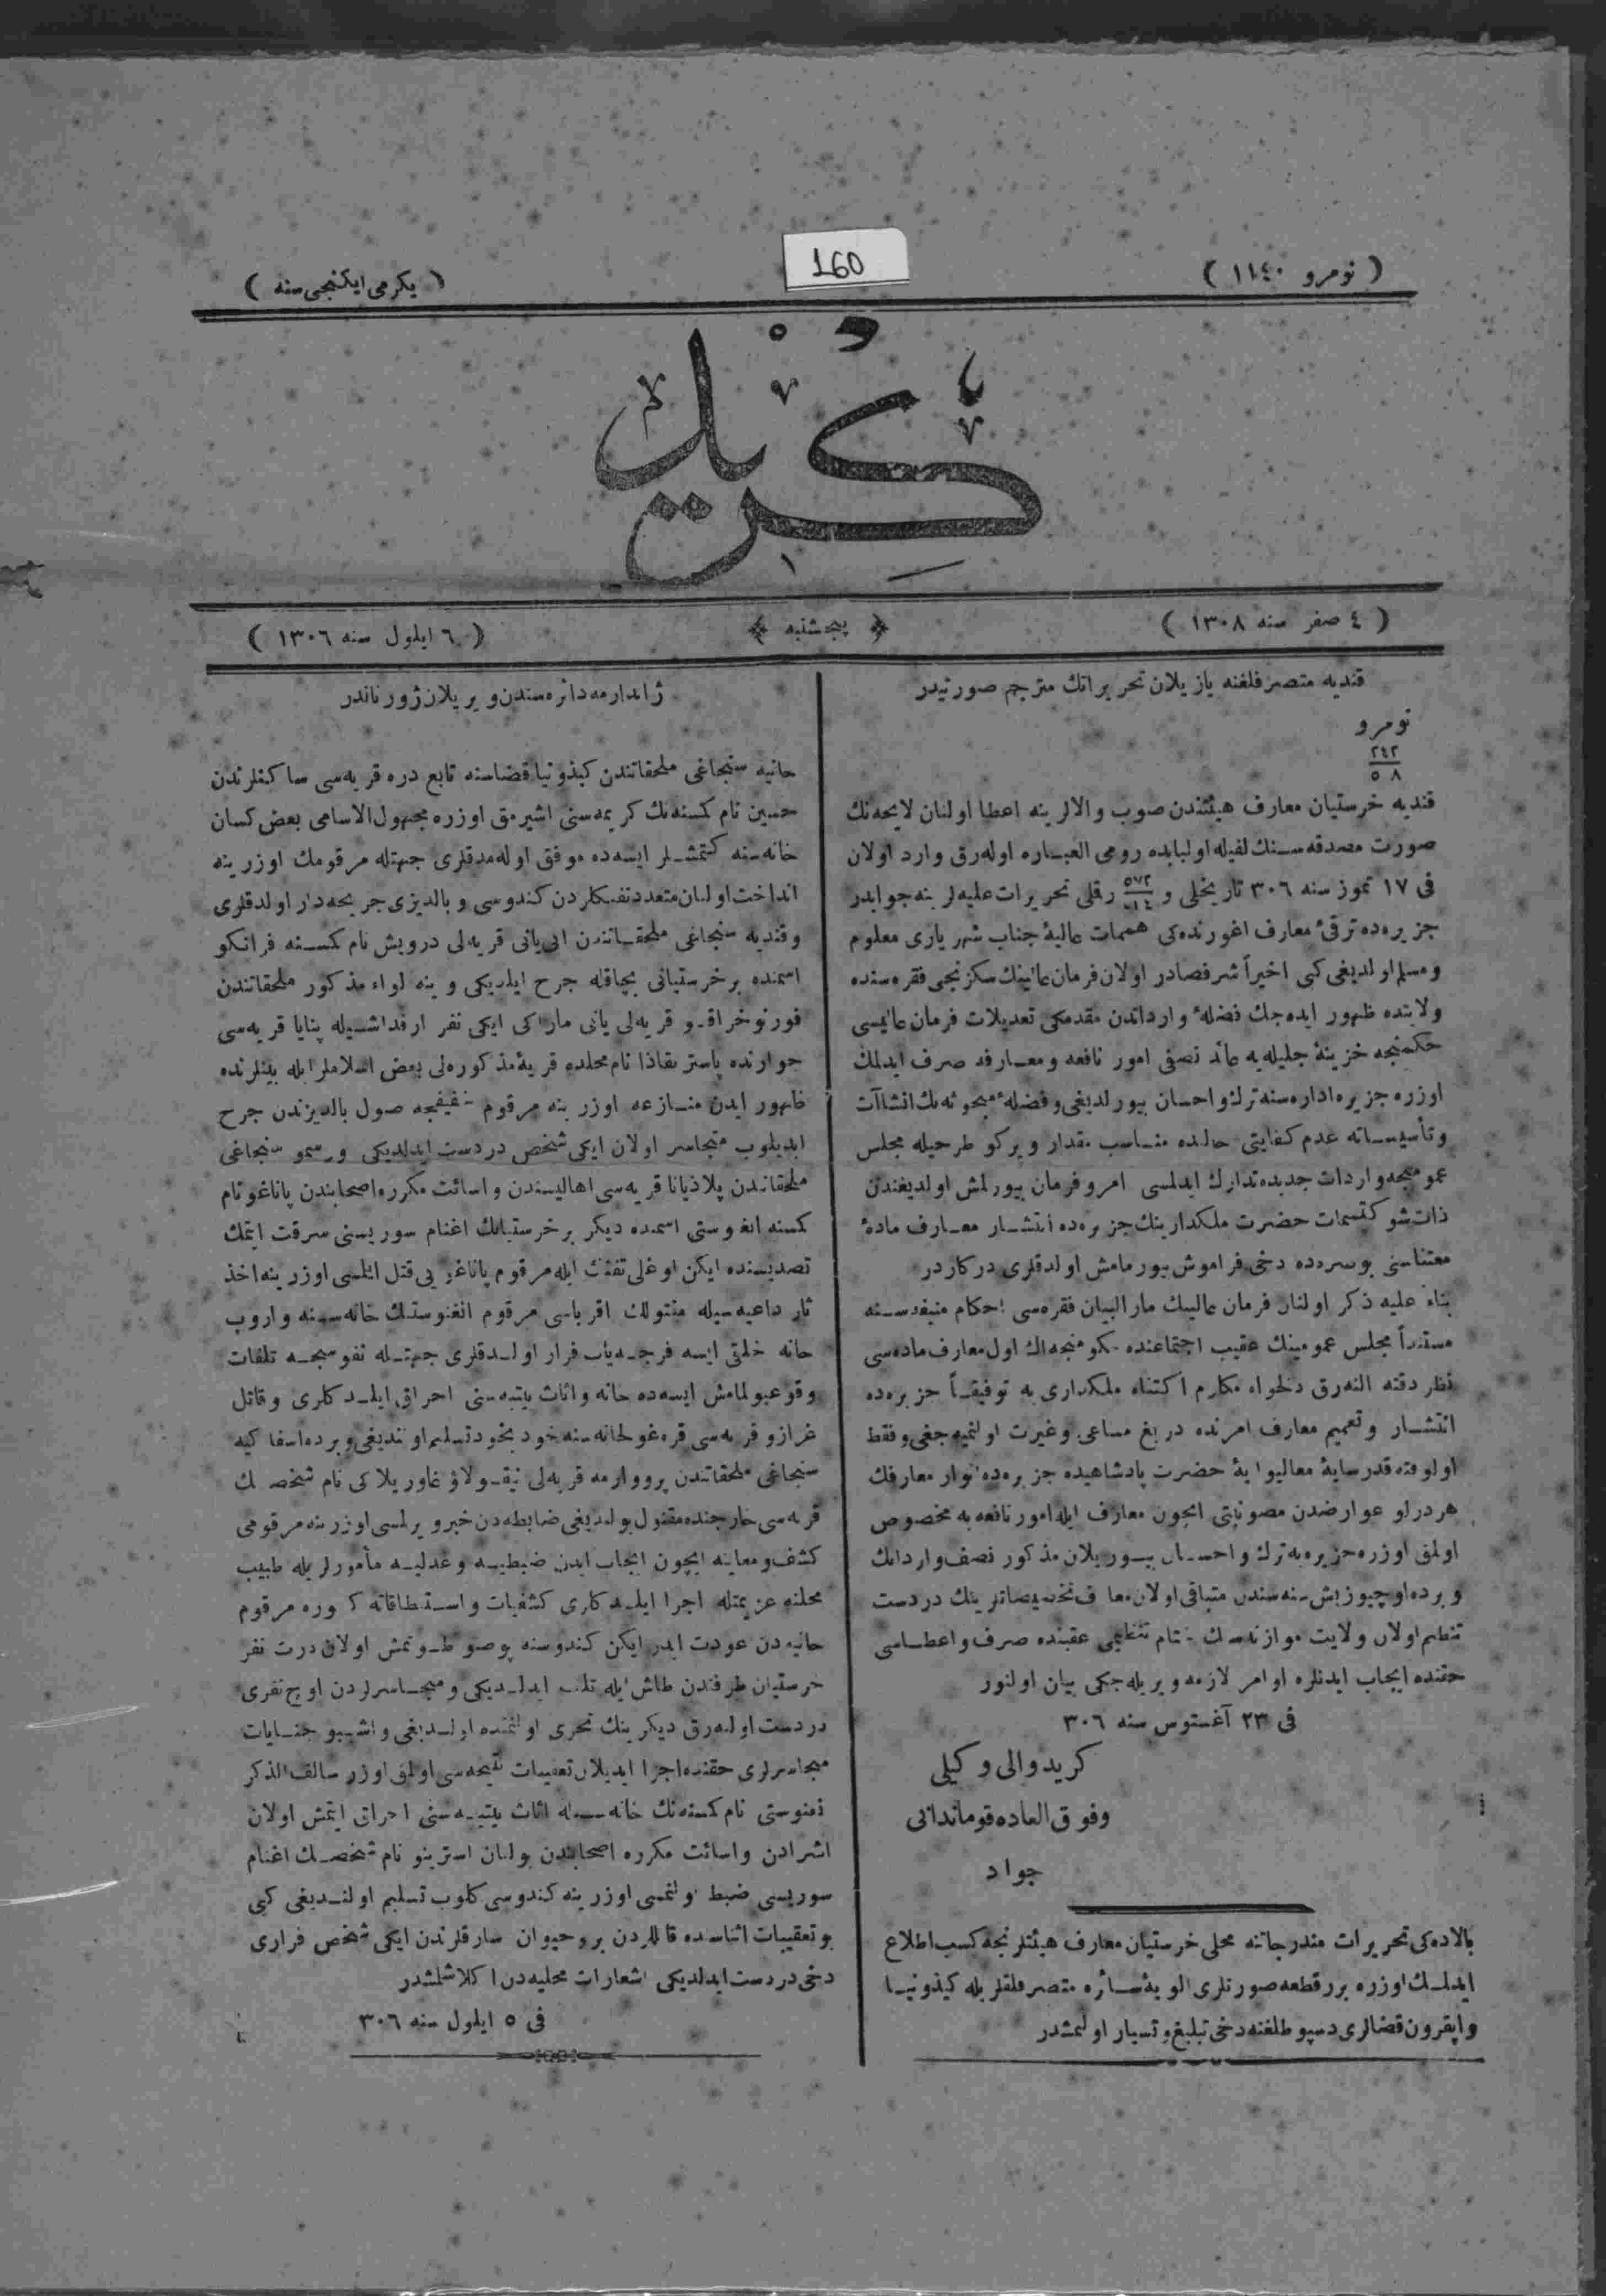 160
( نومرو ١١٤٠ )
( یکرمی ایکنجی سنه )
کرید
( ٤ صفر سنه ١٣٠٨ )
پنجشنبه
( ٦ ایلول سنه ١٣٠٦ )
قندیه متصرفلغنه یازیلان تحریراتك مترجم صورتیدر
نومرو
٢٤٢
٥٨
قندیه خرستیان معارف هیئتندن صوب والالرینه اعطا اولنان لایحه‌نك
صورت مصدقه‌سنك لفیله اولبابده رومی العباره اوله‌رق وارد اولان
فی ١٧ تموز سنه ٣٠٦ تاریخلی و ٥٧٢ رقلی تحریرات علیه‌لرینه جوابدر
جزیره‌ده ترقئ معارف اغورنده‌کی هممات عالیهٔ جناب شهریاری معلوم
ومسلم اولدیغی کبی اخیراً شرفصادر اولان فرمان عالینك سکزنجی فقره‌سنده
ولایتده ظهور ایده‌جك فضلهٔ وارداتدن مقدمکی تعدیلات فرمان عالیسی
حکمنجه خزینهٔ جلیله‌یه عائد نصفی امور نافعه ومعارفه صرف ایدلمك
اوزره جزیره اداره‌سنه ترك واحسان بیورلدیغی وفضلهٔ مبحوثه‌نك انشاآت
وتأسیساته عدم کفایتی حالنده مناسب مقدار ویرکو طرحیله مجلس
عمومیجه واردات جدیده تدارك ایدلمسی امر وفرمان بیورلمش اولدیغندن
ذات شوکتسمات حضرت ملکدارینك جزیره‌ده انتشار معارف مادهٔ
معتناسنی بوسره‌ده دخی فراموش بیورمامش اولدقلری درکاردر
بناءً علیه ذکر اولنان فرمان عالینك مارالبیان فقره‌سی احکام منیفه‌سنه
مستنداً مجلس عمومینك عقیب اجتماعنده حکومتجه اك اول معارف ماده‌سی
نظر دقته النه‌رق دلخواه مکارم اکتناه ملکداری‌یه توفیقاً جزیره‌ده
انتشار وتعمیم معارف امرنده دریغ مساعی وغیرت اولنمیه‌جغی وفقط
اولوقته قدر سایهٔ معالیوایهٔ حضرت پادشاهیده جزیره‌ده انوار معارفك
هردرلو عوارضدن مصونیتی ایچون معارف ایله امور نافعه‌یه مخصوص
اولمق اوزره جزیره‌یه ترك واحسان بیوریلان مذکور نصف وارداتك
وبرده اوچیوزبش سنه‌سندن متباقی اولان معارف تخصیصاتینك دردست
تنظیم اولان ولایت موازنه‌سنك ختام تنظیمی عقبنده صرف واعطاسی
حقنده ایجاب ایدنلره اوامر لازمه ویریله‌جکی بیان اولنور
فی ٢٣ آغستوس سنه ٣٠٦
کرید والی وکیلی
وفوق العاده قوماندانی
جواد
بالاده‌کی تحریرات مندرجاتنه محلی خرستیان معارف هیئتلرنجه کسب اطلاع
ایدلمك اوزره برر قطعه صورتلری الویهٔ سائره متصرفلقلریله کیذونیا
واپقرون قضالری دسپوطلغنه دخی تبلیغ وتسیار اولنمشدر
ژاندارمه دائره‌سندن ویریلان ژورناندر
حانیه سنجاغی ملحقاتندن کیذونیا قضاسنه تابع دره قریه‌سی ساکنلرندن
حسین نام کمسنه‌نك کریمه‌سنی اشیرمق اوزره مجهول الاسامی بعض کسان
خانه‌سنه کتمشلر ایسه‌ده موفق اوله‌مدقلری جهتله مرقومك اوزرینه
انداخت اولنان متعدد تفنکلردن کندوسی و بالدیزی جریحه‌دار اولدقلری
وقندیه سنجاغی ملحقاتندن ابریانی قریه‌لی درویش نام کمسنه فرانکو
اسمنده برخرستیانی بچاقله جرح ایلدیکی و ینه لواء مذکور ملحقاتندن
فورنوخراقو قریه‌لی یانی ماراکی ایکی نفر ارقداشیله پنایا قریه‌سی
جوارنده پاستریقاذا نام محلده قریهٔ مذکوره‌لی بعض اسلاملر ایله بینلرنده
ظهور ایدن منازعه اوزرینه مرقوم خفیفجه صول بالدیزندن جرح
ایدیلوب متجاسر اولان ایکی شخص دردست ایدلدیکی ورسمو سنجاغی
ملحقاتندن پلاذیانا قریه‌سی اهالیسندن واسائت مکرره اصحابندن پاناغو نام
کمسنه انغوستی اسمنده دیکر برخرستیانك اغنام سوریسنی سرقت ایتمك
تصدیسنده ایکن اوغلی تفنك ایله مرقوم پاناغویی قتل ایتلمسی اوزرینه اخذ
ثار داعیه‌سیله مقتولك اقرباسی مرقوم انغوستینك خانه‌سنه واروب
خانه خلقی ایسه فرجه‌یاب فرار اولدقلری جهتله نفوسجه تلفات
وقوعبولمامش ایسه‌ده خانه واثاث بیتیه‌سنی احراق ایلدکلری وقاتل
غرازو قریه‌سی قره‌غولخانه‌سنه خود بخود تسلیم اولندیغی وبرده اسفاکیه
سنجاغی ملحقاتندن پرووارمه قریه‌لی نیقولاؤ غاوریلاکی نام شخصك
قریه‌سی خارجنده مقتول بولندیغی ضابطه‌دن خبر ویرلمسی اوزرینه مرقومی
کشف ومعاینه ایچون ایجاب ایدن ضبطیه وعدلیه مأمورلریله طبیب
محلنه عزیمتله اجرا ایلدکلری کشفیات واستنطاقاته کوره مرقوم
حانیه‌دن عودت ایدر ایکن کندوسنه پوصو طوتمش اولان درت نفر
خرستیان طرفندن طاش ایله تلف ایدلدیکی ومتجاسرلردن اوچ نفری
دردست اوله‌رق دیکرینك تحری اولنمقده اولدیغی واشبو جنایات
متجاسرلری حقنده اجرا ایدیلان تعقیبات نتیجه‌سی اولمق اوزره سالف الذکر
انغوستی نام کمسنه‌نك خانه‌سیله اثاث بیتیه‌سنی احراق ایتمش اولان
اشرادن واسائت مکرره اصحابندن بولنان استرینو نام شخصك اغنام
سوریسی ضبط اولنمسی اوزرینه کندوسی کلوب تسلیم اولندیغی کبی
بوتعقیبات اثناسنده قاتللردن بر وحیوان سارقلرندن ایکی شخص فراری
دخی دردست ایدلدیکی اشعارات محلیه‌دن اکلاشلمشدر
فی ٥ ایلول سنه ٣٠٦